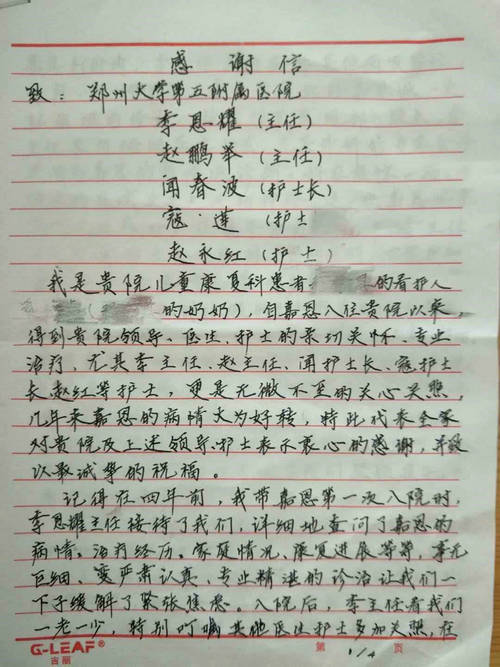 感谢信
致：郑州大学第五附属医院
李恩耀（主任）
赵鹏举（主任）
闻春波（护士长）
寇莲（护士
赵永红（护士）
我是贵院儿童康复科患者的看护人
（的奶奶），自嘉恩入住贵院以来，
得到贵院领导、医生、护士的亲切关怀、专业
治疗，尤其李主任、赵主任、闻护士长、寇护士
长赵红等护士，更是无微不至的关心关照，
几年来嘉恩的病情大为好转，特此代表全家
对贵院及上述领导护士表示衷心的感谢，并致
以最诚挚的祝福。
记得在四年前，我带嘉恩第一次入院时，
李恩耀主任接待了我们，详细地查问了嘉恩的
病情、治疗经历、家庭情况、康复进展等等，事无
巨细、严肃认真、专业精湛的诊治让我们一
下子缓解了紧张焦虑。入院后，李主任看我们
一老一少，特别叮嘱其他医生护士多加关照，在
G-LEAF®
吉丽
第 1/4 页